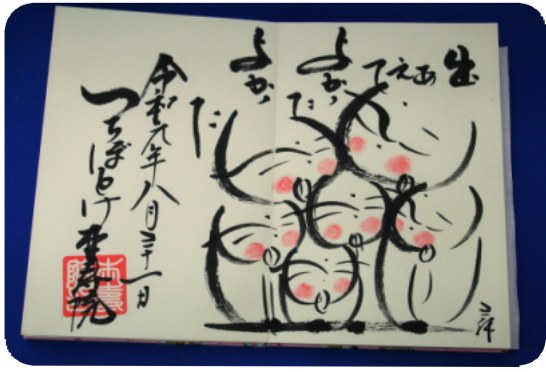 出あえて
よかった
よかった
令和元年八月三十一日
つちぼとけ 本寿院